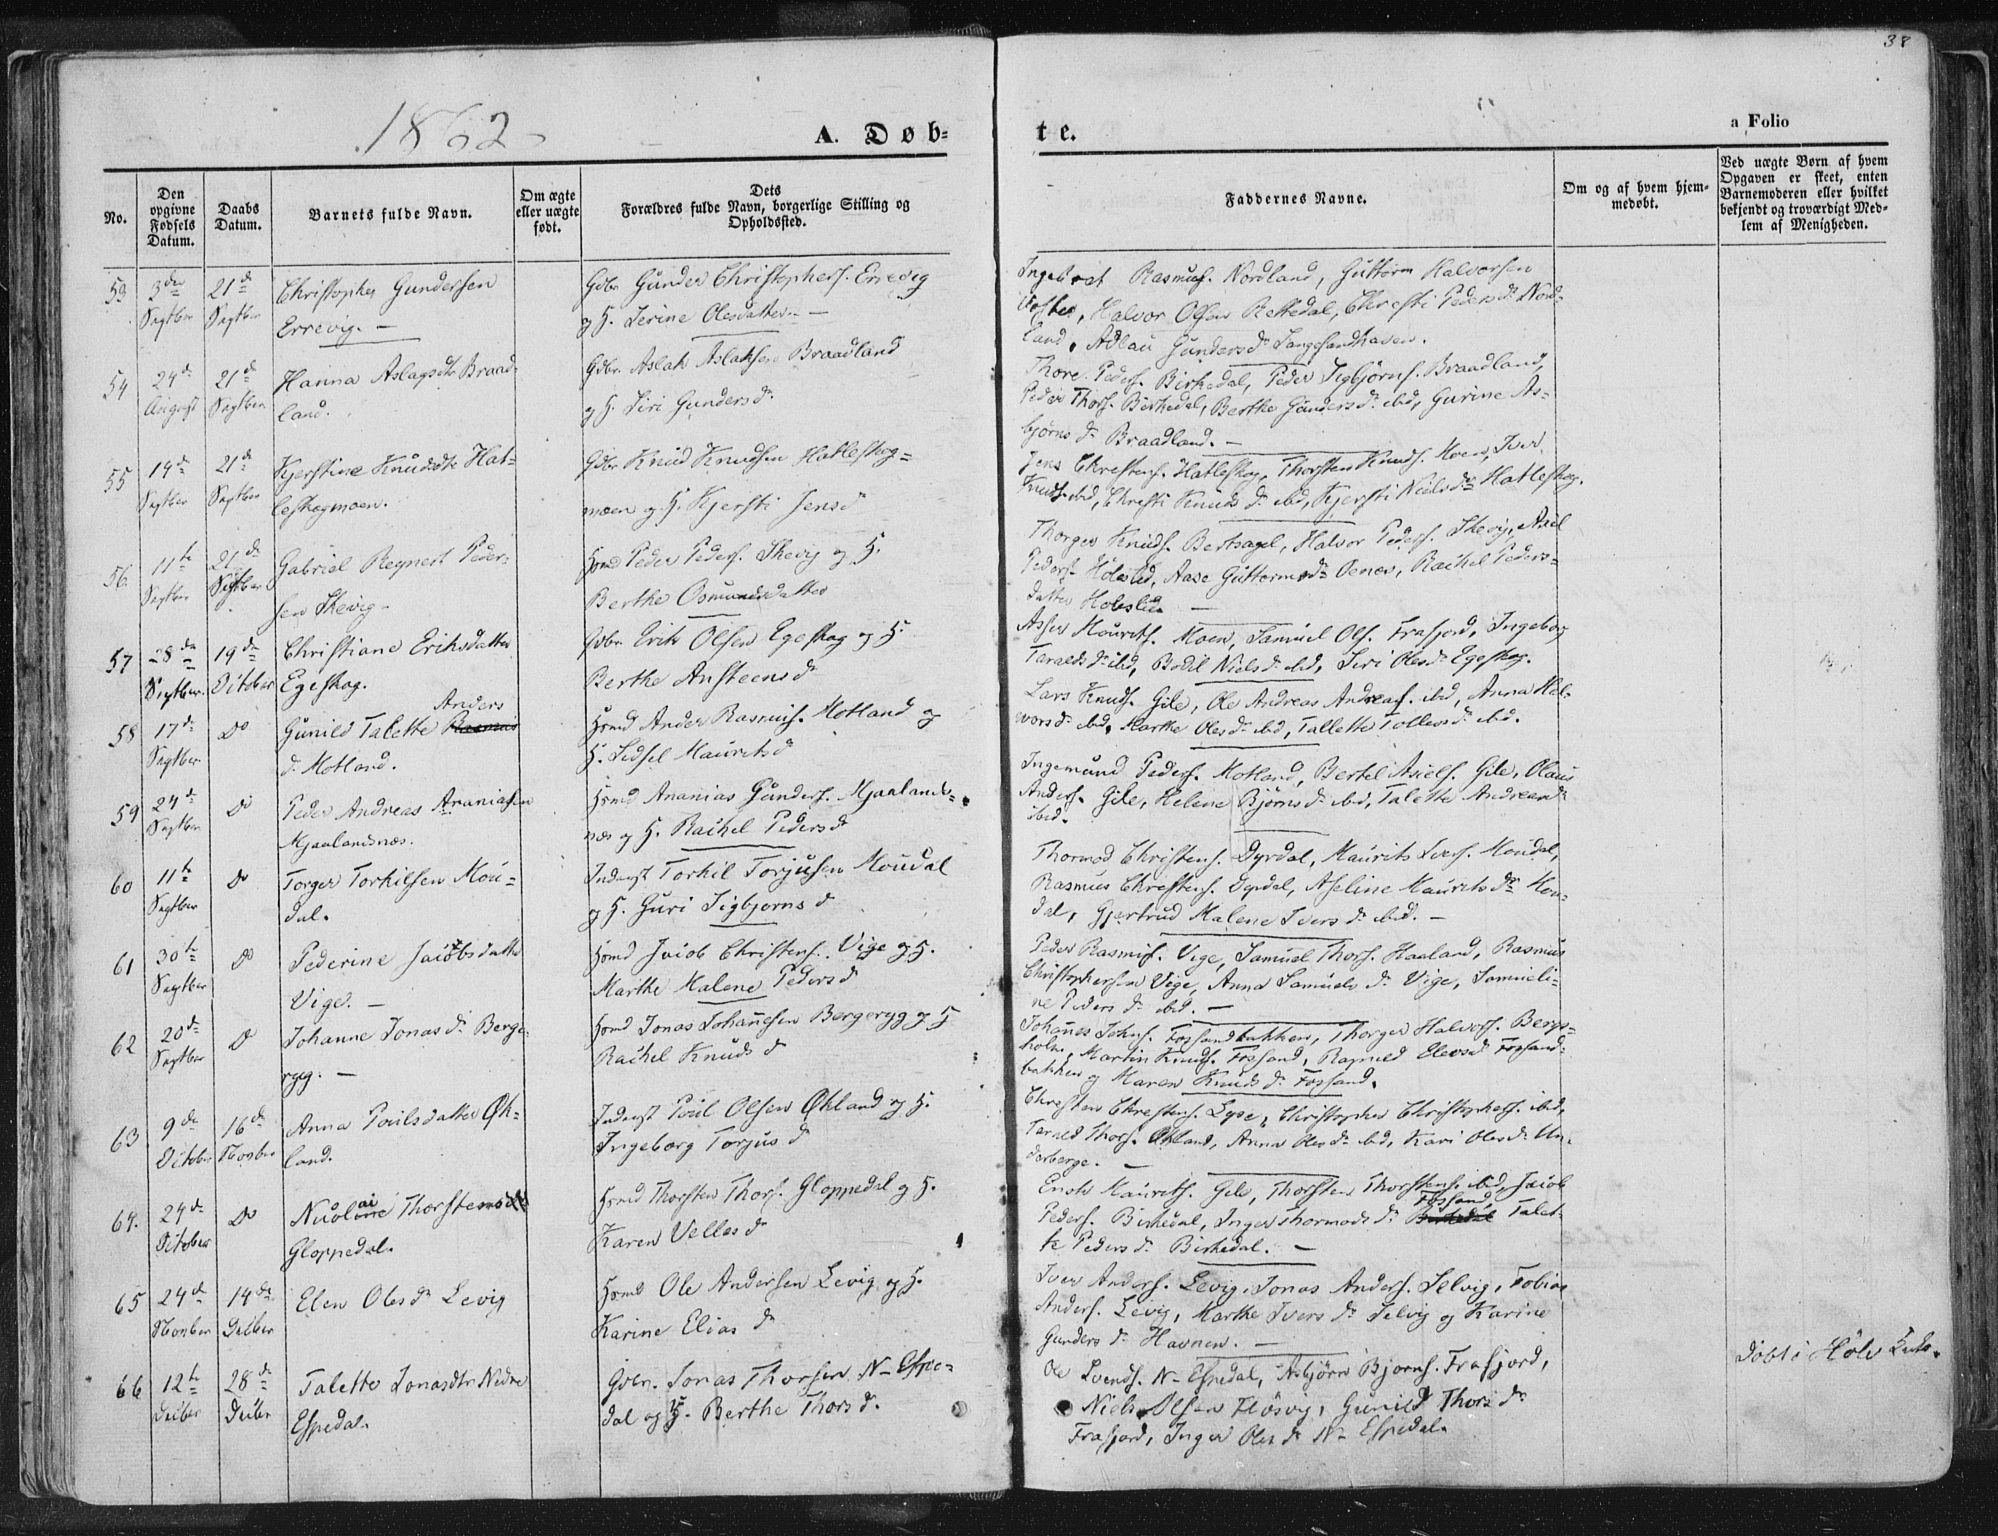 38
1862
A. Døb-
te.
a Folio
No.
Den opgivne Fødsels Datum.
Daabs Datum.
Barnets fulde Navn.
Om ægte eller uægte født.
Dets Forældres fulde Navn, borgerlige Stilling og Opholdssted.
Faddernes Navne.
Om og af hvem hjem-
medøbt.
Ved uægte Børn af hvem
Opgaven er skeet, enten
Barnemoderen eller hvilket
bekjendt og troværdigt Med-
lem af Menigheden.
53
3die Septber
21de Septber
Christopher Gundersen
Errevig. —
Gdbr Gunder Christophers. Errevig
og H. Serine Olesdatter —
Ingebret Rasmus. Nordland, Guttorm Halvorsen
Halvor Olsen Rettedal, Christi Peders Dr Nord-
land, Adlau Gundersdr Langesandhavn.
54
24de August
21de Septber
Hanna Aslagsdtr Braad-
land.
Gdbr. Aslak Aslaksen Braadland
og H. Siri Gundersdr
Thore Peders. Birkedal, Peder Sigbjörns. Braadland,
Peder Thors. Birkedal, Berthe Gundersdr ibid, Gurine As-
bjørnsdr Braadland. —
55
14de Septber
21de Septber
Kjerstine Knudsdtr Hat-
leskogmoen.
Gdbr Knud Knudsen Hatleskog-
moen og H. Kjersti Jensd
Jens Christens. Hatleskog, Thorsten Knuds. Moen, Iver
Knuds. ibid, Christi Knudsdr ibid, Kjersti Nielsdr Hatleskog.
56
11te Septber
21de Septber
Gabriel Reynert Peder-
sen Skevig
Hsmd Peder Peders. Skevig og H.
Berthe Osmundsdatter
Thorger Knuds. Bertsagel, Halvor Peders. Skevig, Axel
Peders. Holeslid, Aase Guttormsdr Oenes, Rachel Peders-
datter Holeslid. —
57
28de Septber.
19de October
Christiane Eriksdatter
Egeskog.
Gdbr Erik Olsen Egeskog og H.
Berthe Ansteensdr
Asser Mourits. Moen, Samuel Ols. Frafjord, Ingeborg
Taraldsdr ibid, Bodil Nielsdr ibid, Siri Olesdr Egeskog.
58
17de Septber
Do
Anders
Gunild Talette Rasmus
dr Motland.
Hsmd Ander Rasmus. Motland og
H. Sidsel Mauritsd
Lars Knuds. Gile, Ole Andreas Andreas. ibid, Anna Hal-
vorsdr ibid, Marthe Olesdr ibid, Tallette Tollevsdr ibid.
59
24de Septber
Do
Peder Andreas Ananiasen
Mjaalandsnæs.
Hsmd Ananias Gunders. Mjaalands-
næs og H. Rachel Pedersdr
Ingemund Peders. Motland, Bertel Asiels. Gile, Olaus
Anders. Gile, Helene Bjørnsdr ibid, Talette Andreasdr
ibid.
60
11te Septber
Do
Torger Torkilsen Mou-
dal.
Inderst Torkil Torjusen Moudal
og H. Guri Sigbjørnsd
Thormod Christens. Dyrdal, Maurits Ivers. Moudal,
Rasmus Christens. Dyrdal, Aseline Mauritsdr Mou-
dal, Gjertrud Malene Iversdr ibid. —
61
30te Septber
Do
Pederine Jacobsdatter
Vige. —
Hsmd Jacob Christens. Vige og H.
Marthe Malene Pedersd
Peder Rasmus. Vige, Samuel Thors. Haaland, Rasmus
Christophersen Vige, Anna Samuelsdr Vige, Samueli-
ne Pedersdr ibid. —
62
20de Septber
Do
Johanne Jonasdr Berge-
ryg. —
Hsmd Jonas Johannesen Bergeryg og H
Rachel Knudsd
Johanes Johns. Fossandbakken, Thorger Halvors. Berge-
holm, Martin Knuds. Fossand, Ragnild Elevsd Fossand-
bakken og Maren Knudsdr Fossand.
63
9de October
16de Novber
Anna Poulsdatter Øk-
land.
Inderst Poul Olsen Økland og H.
Ingeborg Torjusd
Christen Christens. Lyse, Christopher Christophers. ibid,
Tarald Thors. Økland, Anna Olesdr ibid, Kari Olesdr Un-
derberge. —
64.
24de October
Do
Thorstensdtr
Gloppedal.
Hsmd Thorsten Thors. Gloppedal og H.
Karen Vellesd
Enok Maurits. Gile, Thorsten Thorstens. ibid, Jacob
Peders. Birkedal, Inger Thormodsdr Birkedal Fossand, Talet-
te Pedersdr Birkedal. —
65
24de Novber
14de Decber
Elen Olesdr Levig
Hsmd Ole Andersen Levig og H.
Karine Eliasd
Iver Anders. Levig, Jonas Anders. Selvig, Tobias
Anders. Levig, Marthe Iversdr Selvig og Karine
Gundersdr Havnen. —
66
12te Decber
28de Decber
Talette Jonasdtr Nedre
Espedal.
Gdbr. Jonas Thorsen N- Espe-
dal og H. Berthe Thorsd.
Ole Svends. N- Espedal, Asbjørn Bjørns. Frafjord,
Niels Olsen Fløsvig, Gunild Thorsdr
Frafjord, Inger Olesdr N- Espedal.
Döbt i Höle Kirke.